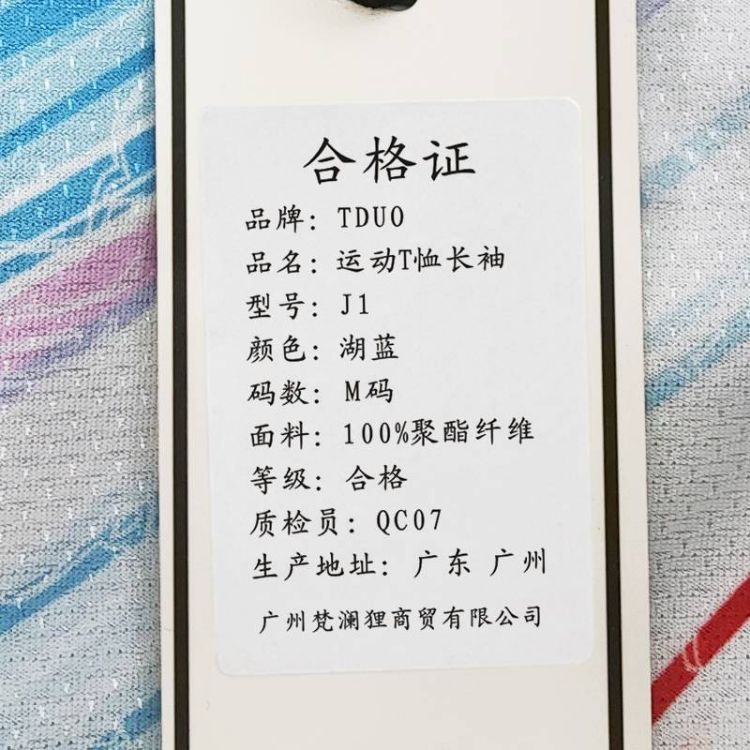 合格证
品牌：TDUO
品名：运动T恤长袖
型号：J1
颜色：湖蓝
码数：M码
面料：100%聚酯纤维
等级：合格
质检员：QC07
生产地址：广东 广州
广州梵澜狸商贸有限公司